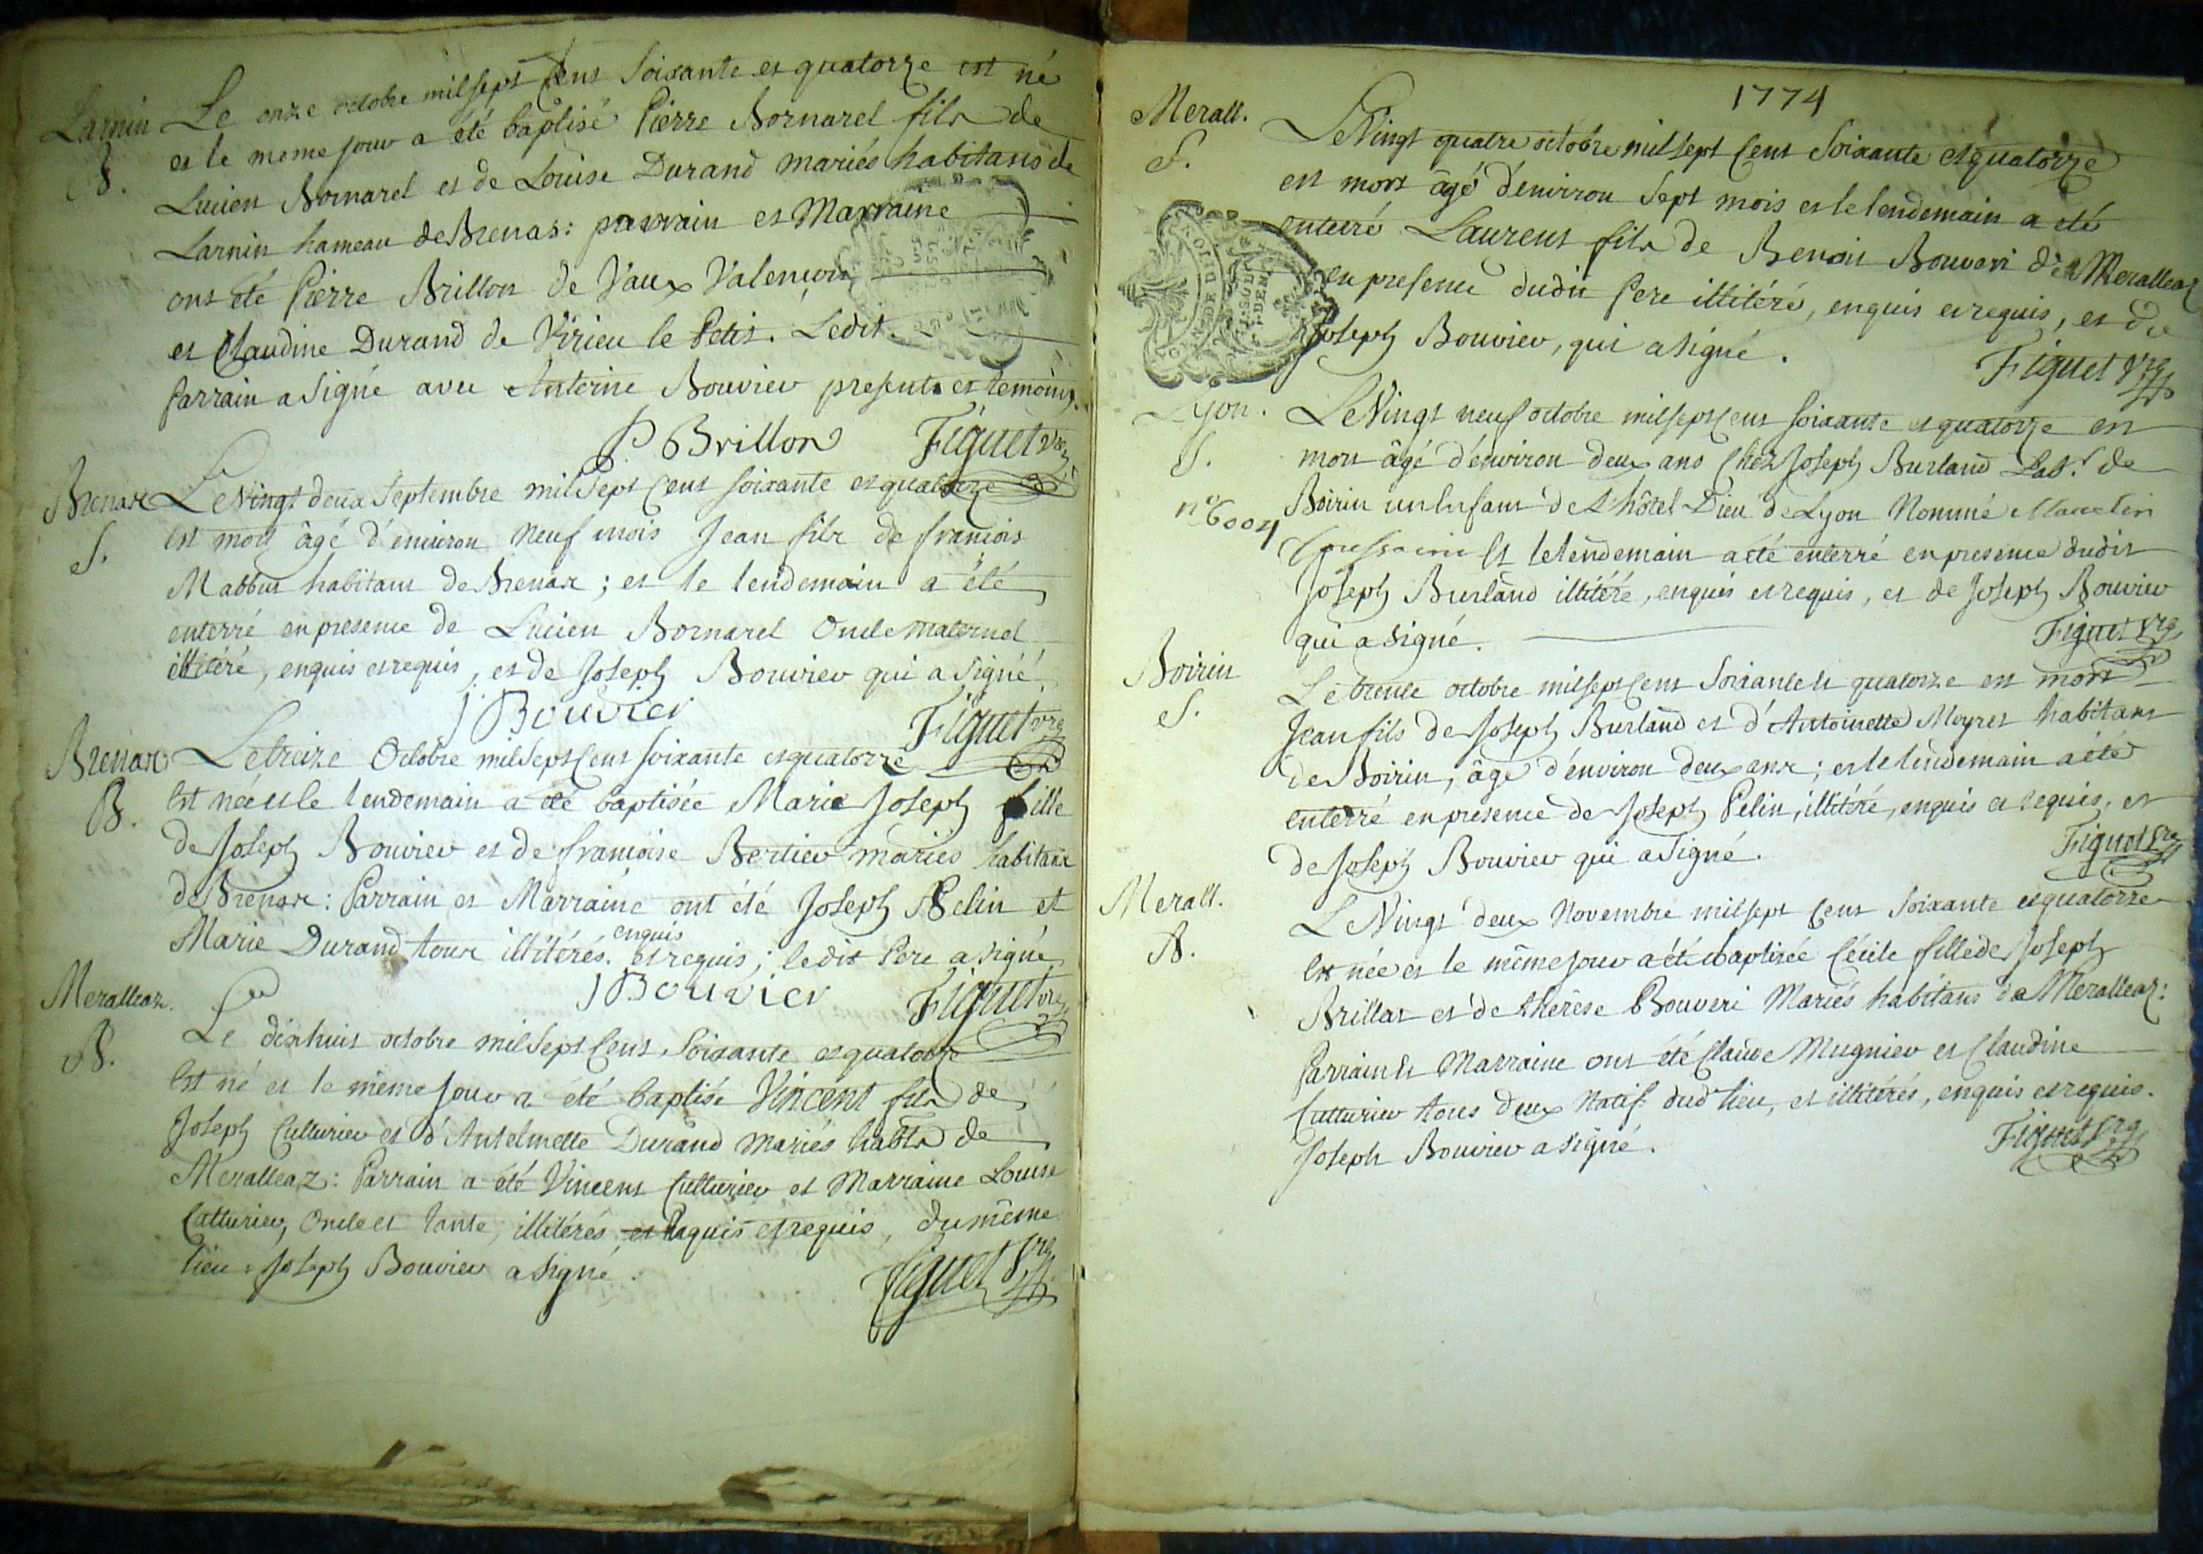 Larnin
B.
Le onze octobre mil sept Cent soixante et quatorze est né
et le meme jour a été baptisé Pierre Bornarel fils de
Lucien Bornarel et de Louise Durand mariés habitans de
Larnin hameau de Brenas: parrain et Marraine
ont été Pierre Brillon de Vaux Valençon
et Claudine Durand de Virieu le Petit. Ledit
Parrain a signé avec Bouvier presents et temoins.
P Brillon Figuet vre
Brenaz
S.
Le Vingt deux Septembre mil Sept Cent soixante et quatorze
est mort âgé d'environ neuf mois Jean fils de françois
habitant de Brenaz; et le lendemain a été
enterré en presence de Lucien Bornarel Oncle maternel
illitéré, enquis et requis, et de Joseph Bouvier qui a signé
J Bouvier Figuet vre
Brenaz
B.
Le treize Octobre mil Sept Cent soixante et quatorze
est née et le lendemain a été baptisée Marie Joseph fille
de Joseph Bouvier et de françoise Bertier mariés habitans
de Brenaz: Parrain et Marraine ont été Joseph Pelin et
Marie Durand tous illitérés. enquis et requis; ledit Pere a signé
J Bouvier Figuet vre
Meralleaz.
B.
Le dixhuit octobre mil Sept Cent Soixante et quatorze
est né et le même Jour a été baptisé Vincent fils de
Joseph Cutturier et d'Antelmette Durand mariés habts de
Meralleaz: Parrain a été Vincent Cutturier et Marraine Louise
Cutturier, Oncle et tante, illitérés, enquis et requis, du même
lieu. Joseph Bouvier a signé.
Figuet Vre
1774
Merall.
S.
Le Vingt quatre octobre mil sept Cent Soixante et quatorze
est mort âgé d'environ sept mois et le lendemain a été
enterré Laurent fils de Benoit Bouveri de Meralleaz
en presence dudit Pere illitéré, enquis et requis, et de
Joseph Bouvier, qui a signé.
Figuet Vre
Lyon.
S.
n° 6004
Le Vingt neuf octobre mil sept Cent soixante et quatorze est
mort âgé d'environ deux ans Chez Joseph Burland Lab.r de
Boirin un Enfant de l'hôtel-Dieu de Lyon Nommé
Et le lendemain a été enterré en presence dudit
Joseph Burland illitéré, enquis et requis, et de Joseph Bouvier
qui a signé.
Figuet Vre
Boirin
S.
Le trente octobre mil sept Cent Soixante et quatorze est mort
Jean fils de Joseph Burland et d'Antoinette Meyret habitans
de Boirin, âgé d'environ deux ans; et le lendemain a été
enterré en presence de Joseph Pelin, illitéré, enquis et requis, et
de Joseph Bouvier qui a signé.
Figuet Vre
Merall.
B.
Le Vingt deux Novembre mil sept Cent Soixante et quatorze
Est née et le même jour a été baptisée Cécile fille de Joseph
Brillat et de thérèse Bouveri Mariés habitans de Meralleaz:
Parrain et Marraine ont été Claude Mugnier et Claudine
Cutturier tous deux Natifs dud. lieu, et illitérés, enquis et requis.
Joseph Bouvier a signé.
Figuet Vre